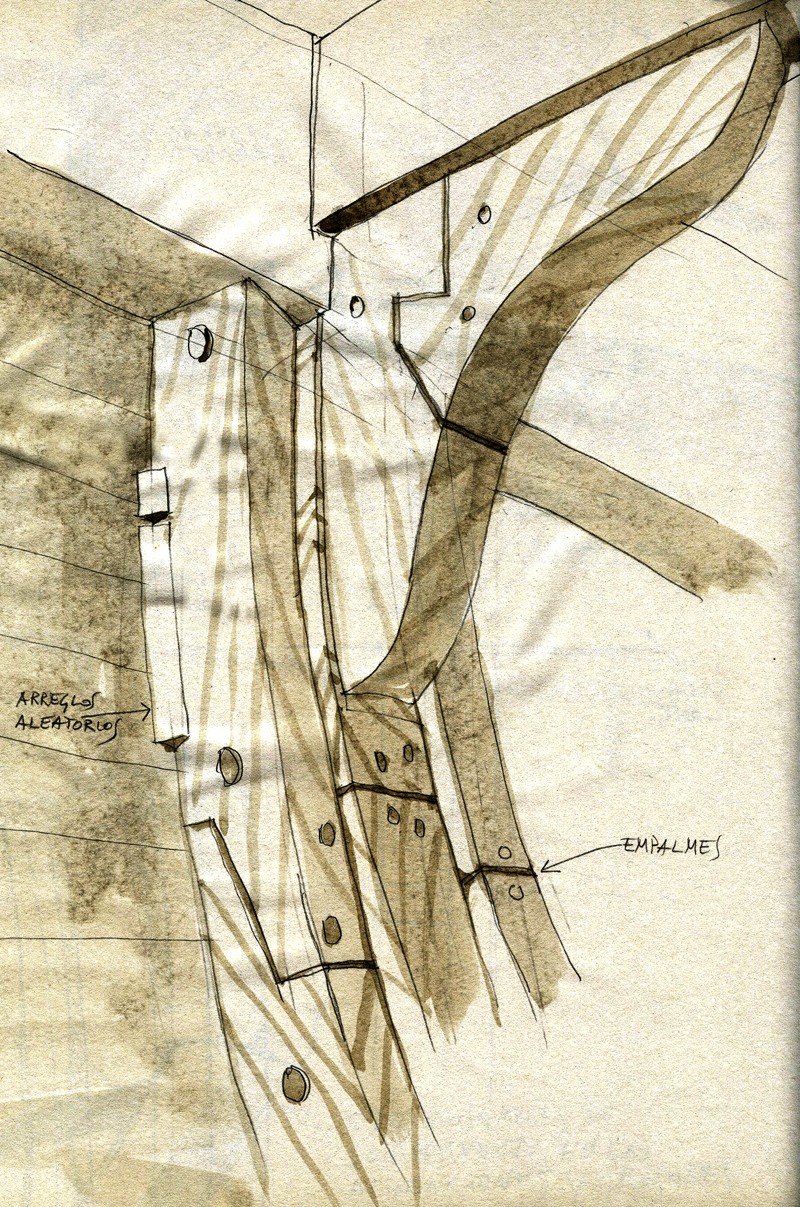 ARREGLOS
ALEATORIOS
EMPALMES